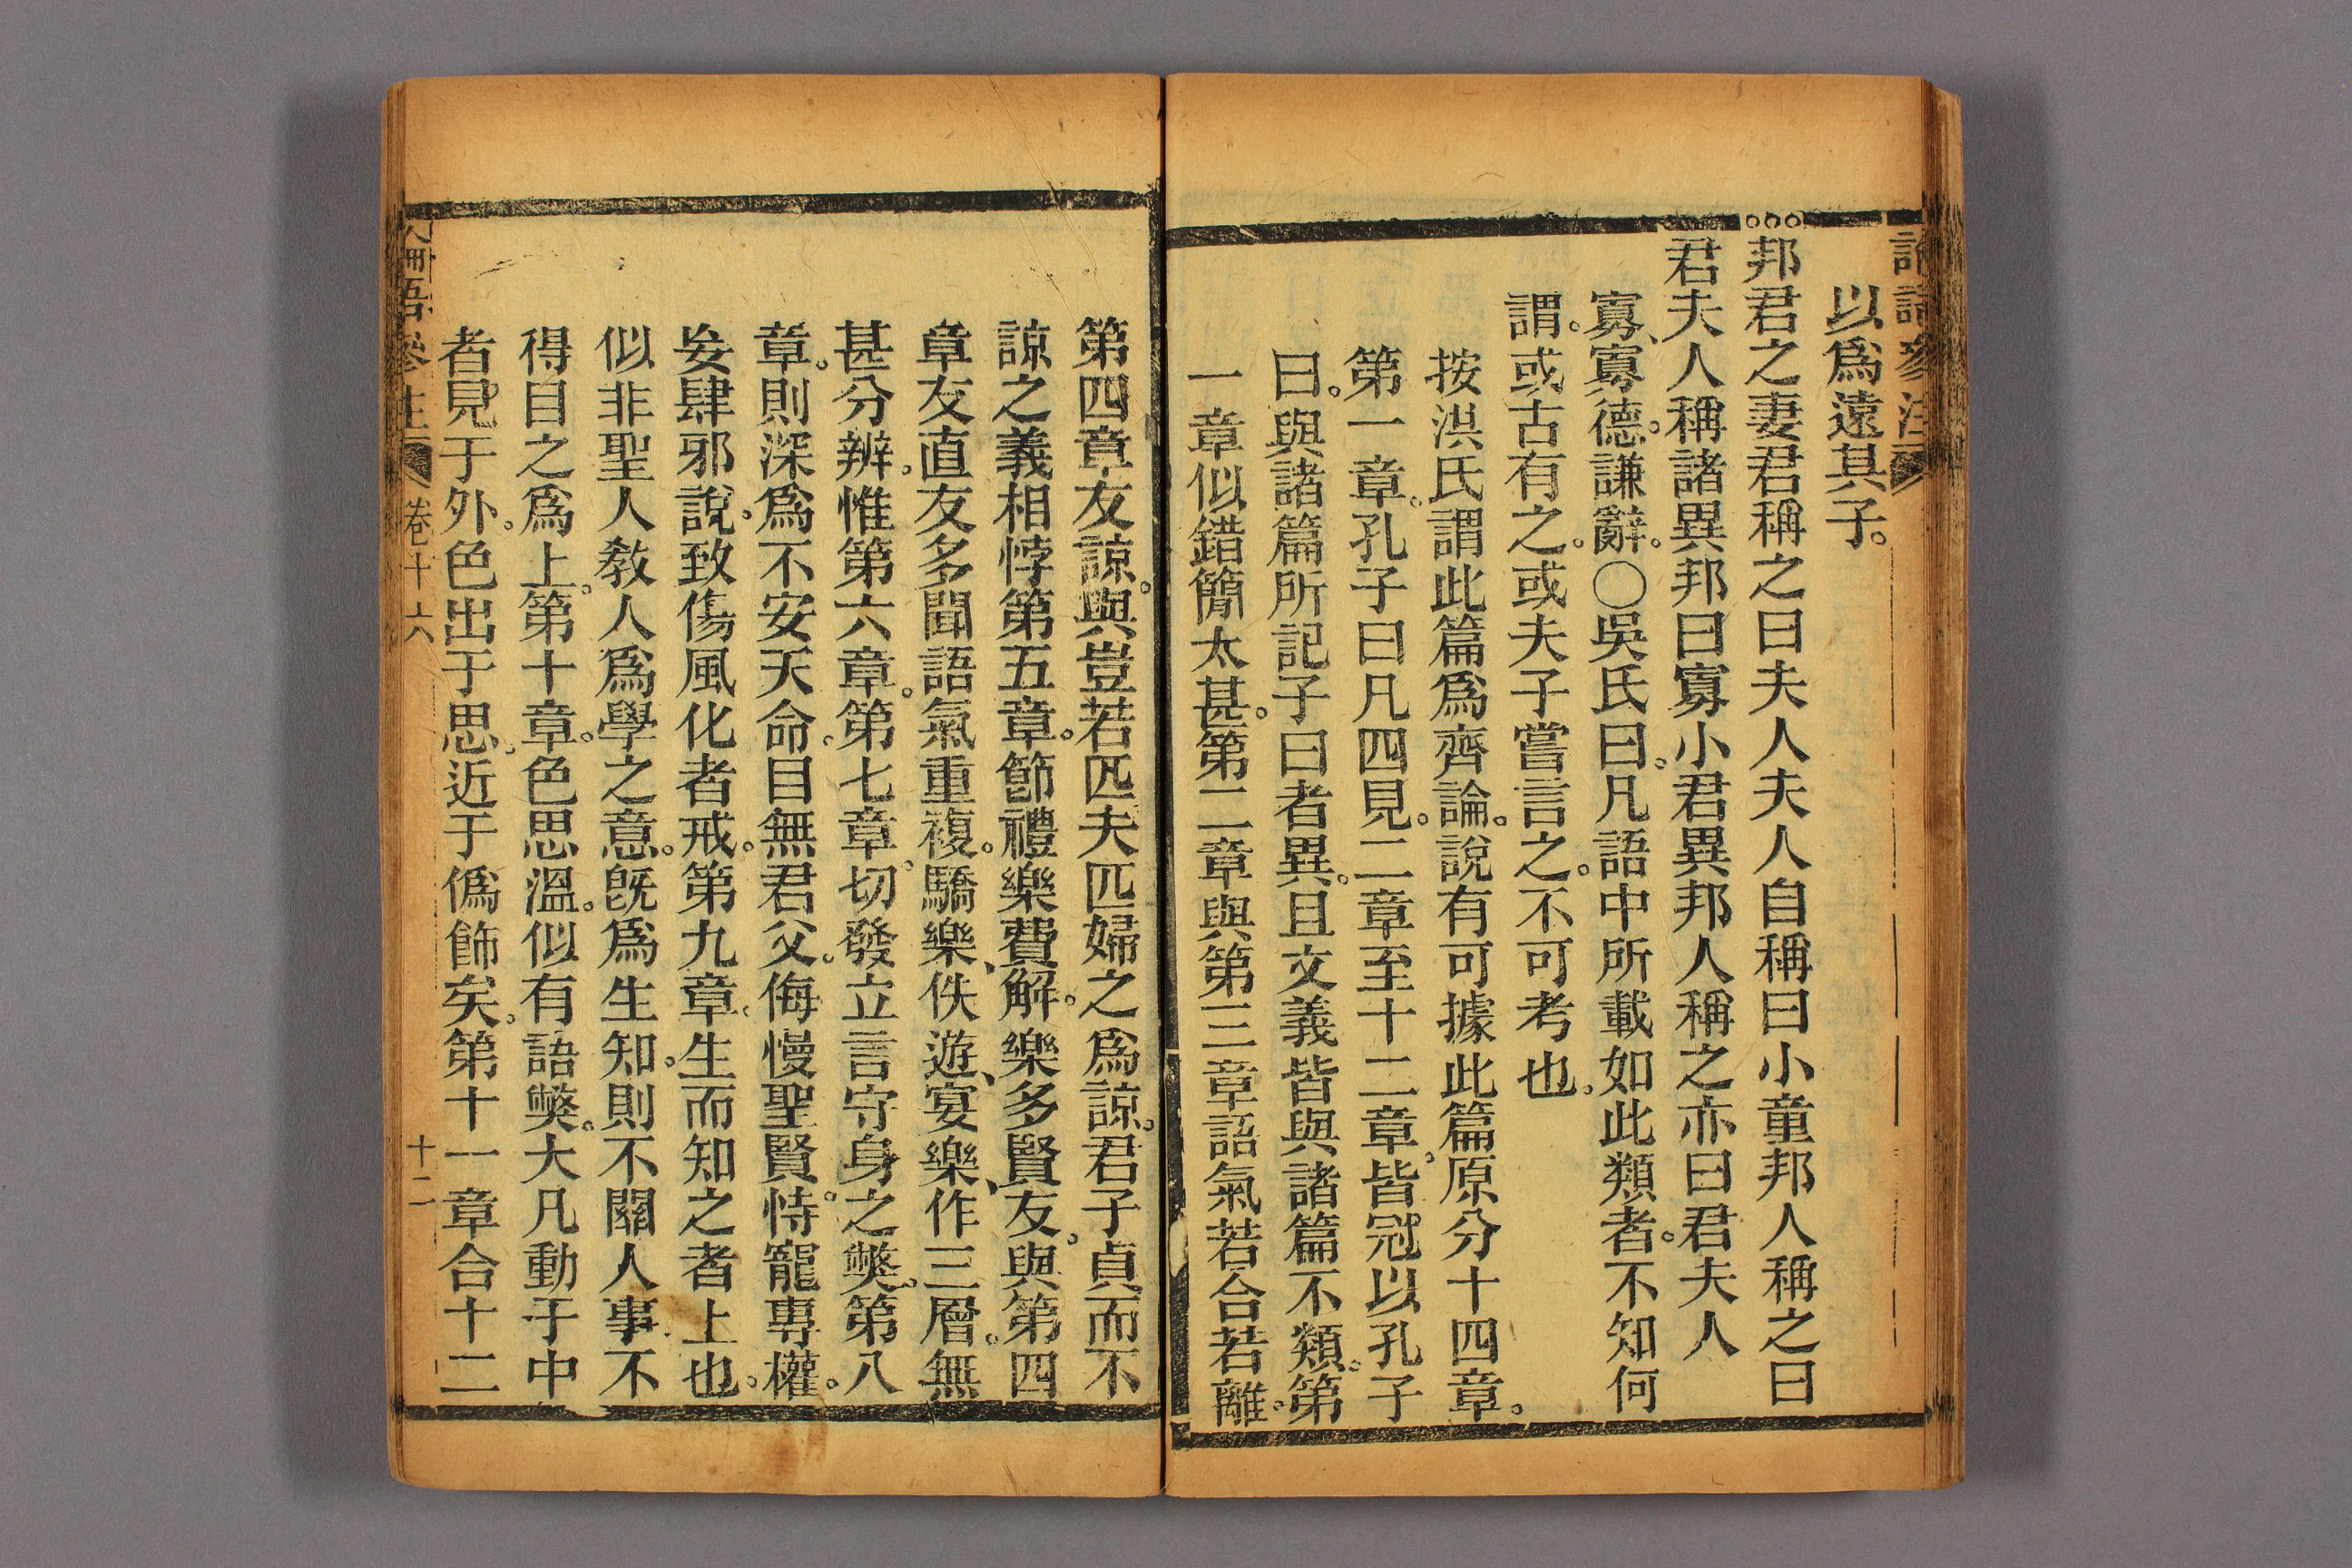 論語參注
以爲遠其子。
邦君之妻君稱之曰夫人夫人自稱曰小童邦人稱之曰
君夫人稱諸異邦曰寡小君異邦人稱之亦曰君夫人
寡、寡德。謙辭。○吳氏曰。凡語中所載如此類者。不知何
謂。或古有之。或夫子嘗言之。不可考也。
按洪氏謂此篇爲齊論。說有可據此篇原分十四章。
第一章。孔子曰凡四見。二章至十二章。皆冠以孔子
曰。與諸篇所記子曰者異。且文義皆與諸篇不類。第
一章似錯簡太甚。第二章與第三章語氣若合若離。
第四章友諒。與豈若匹夫匹婦之爲諒。君子貞而不
諒之義相悖第五章。節禮樂費解。樂多賢友。與第四
章友直友多聞語氣重複。驕樂、佚遊、宴樂、作三層。無
甚分辨。惟第六章。第七章。切發立言守身之獘。第八
章。則深爲不安天命。目無君父。侮慢聖賢。恃寵專權。
妄肆邪說。致傷風化者戒。第九章。生而知之者上也。
似非聖人敎人爲學之意。旣爲生知。則不關人事不
得目之爲上。第十章。色思溫。似有語獘。大凡動于中
者見于外。色出于思。近于僞飾矣。第十一章合十二
論語參注
卷十六
十二